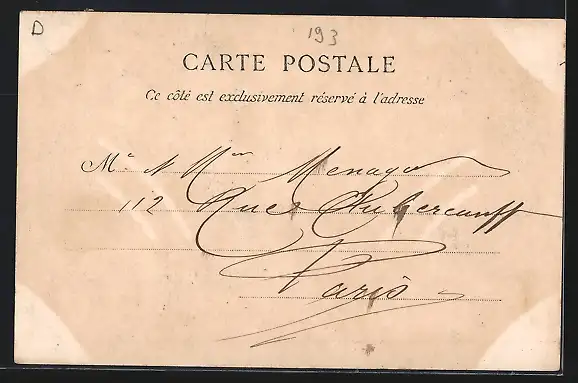 D
193
CARTE POSTALE
Ce côté est exclusivement réservé à l'adresse
Mr & Mme Menager
112 Rue Aubercampff
Paris